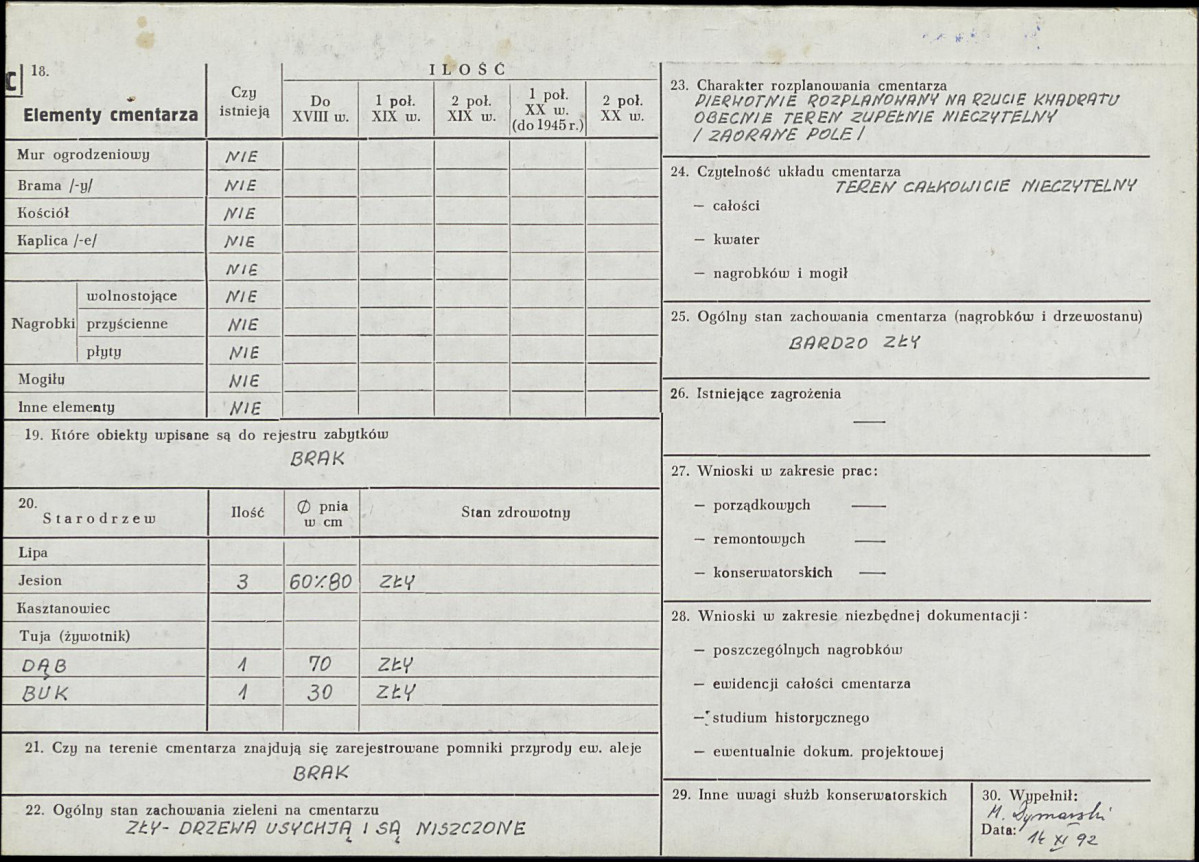 C
18.
Elementy cmentarza
Czy istnieją
ILOŚĆ
Do XVIII w.
1 poł. XIX w.
2 poł. XIX w.
1 poł. XX w. (do 1945 r.)
2 poł. XX w.
Mur ogrodzeniowy NIE
Brama /-y/ NIE
Kościół NIE
Kaplica /-e/ NIE
NIE
Nagrobki
wolnostojące NIE
przyścienne NIE
płyty NIE
Mogiły NIE
Inne elementy NIE
19. Które obiekty wpisane są do rejestru zabytków
BRAK
20.
Starodrzew
Ilość
Ø pnia w cm
Stan zdrowotny
Lipa
Jesion 3 60%80 ZŁY
Kasztanowiec
Tuja (żywotnik)
DĄB 1 70 ZŁY
BUK 1 30 ZŁY
21. Czy na terenie cmentarza znajdują się zarejestrowane pomniki przyrody ew. aleje
BRAK
22. Ogólny stan zachowania zieleni na cmentarzu
ZŁY- DRZEWA USYCHJĄ I SĄ NISZCZONE
23. Charakter rozplanowania cmentarza
PIERWOTNIE ROZPLANOWANY NA RZUCIE KWADRATU
OBECNIE TEREN ZUPEŁNIE NIECZYTELNY
/ ZAORANE POLE /
24. Czytelność układu cmentarza
TEREN CAŁKOWICIE NIECZYTELNY
— całości
— kwater
— nagrobków i mogił
25. Ogólny stan zachowania cmentarza (nagrobków i drzewostanu)
BARDZO ZŁY
26. Istniejące zagrożenia
—
27. Wnioski w zakresie prac:
— porządkowych —
— remontowych —
— konserwatorskich —
28. Wnioski w zakresie niezbędnej dokumentacji:
— poszczególnych nagrobków
— ewidencji całości cmentarza
— studium historycznego
— ewentualnie dokum. projektowej
29. Inne uwagi służb konserwatorskich
30. Wypełnił:
M. Dymarski
Data: 14 XI 92